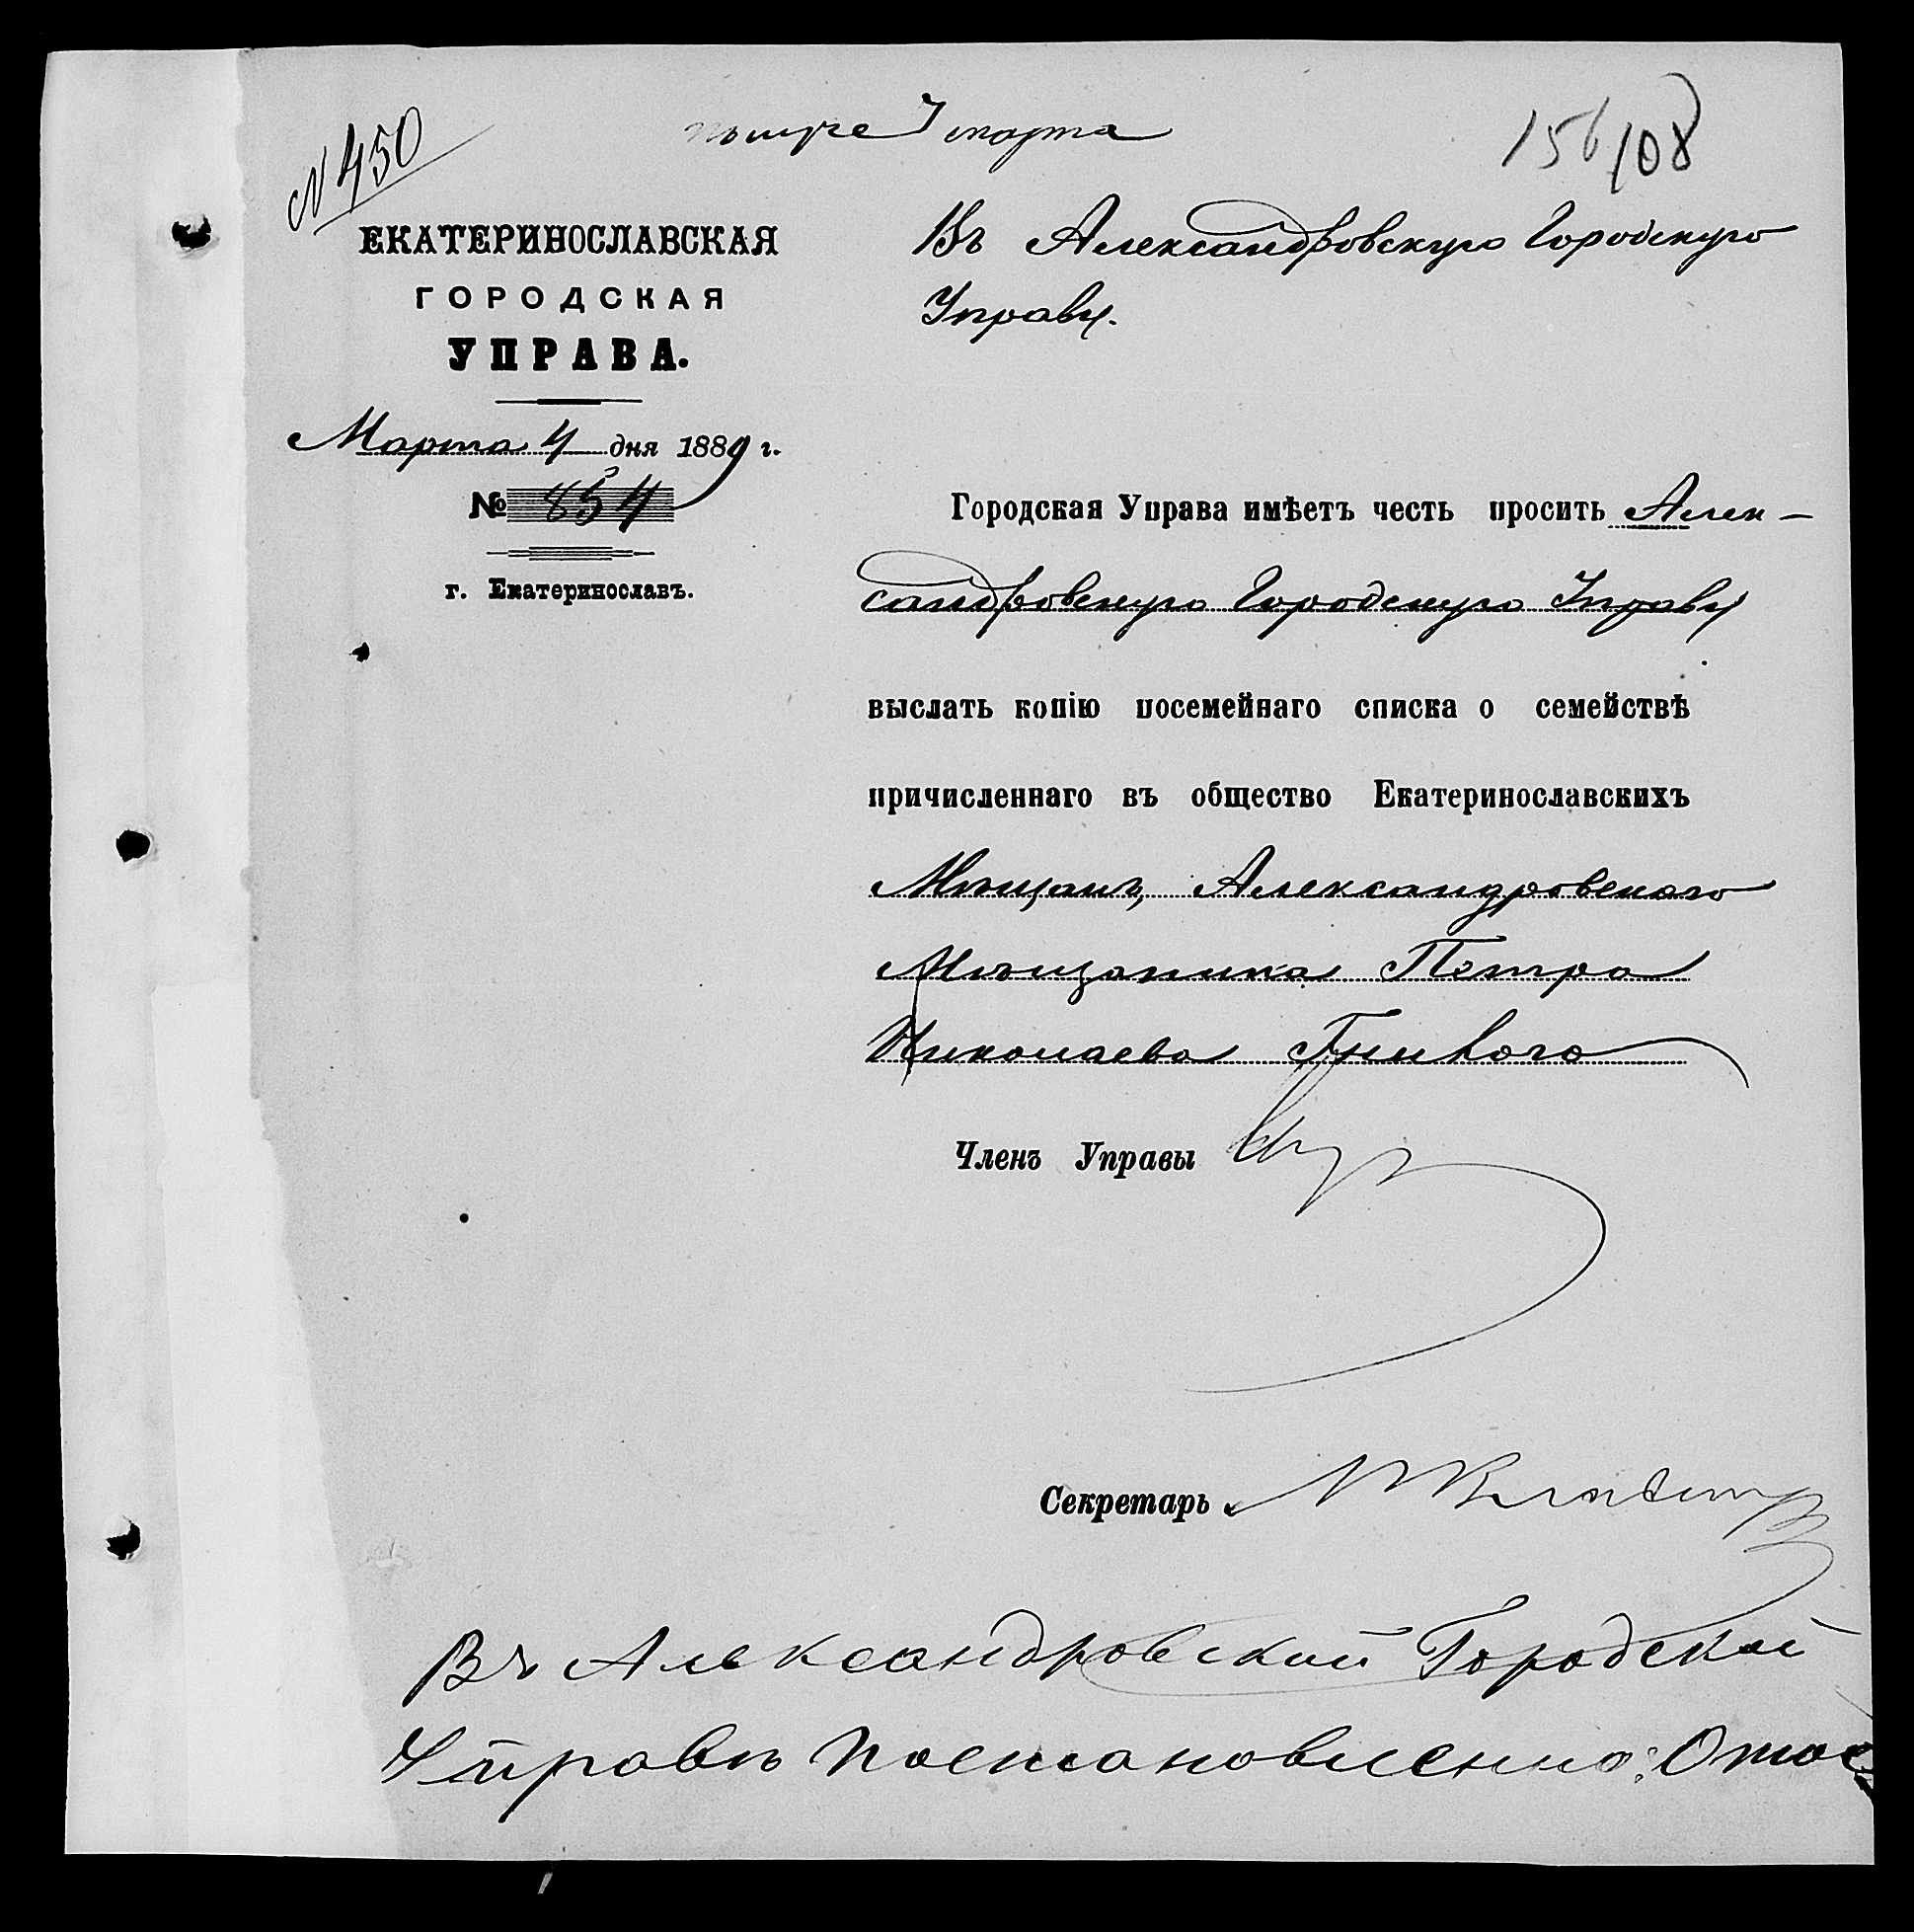 № 450
7 марта
156 108
ЕКАТЕРИНОСЛАВСКАЯ
ГОРОДСКАЯ
УПРАВА.
Марта 4 дня 1889 г.
№ 854
г. Екатеринославъ.
Въ Александровскую Городскую
Управу.
Городская Управа имѣетъ честь просить Алек-
сандровскую Городскую Управу
выслать копію посемейнаго списка о семействѣ
причисленнаго въ общество Екатеринославскихъ
Мѣщанъ, Александровскаго
Мѣщанина Петра
Николаева
Членъ Управы
Секретарь
Въ Александровской Городской
Управѣ постановлено: